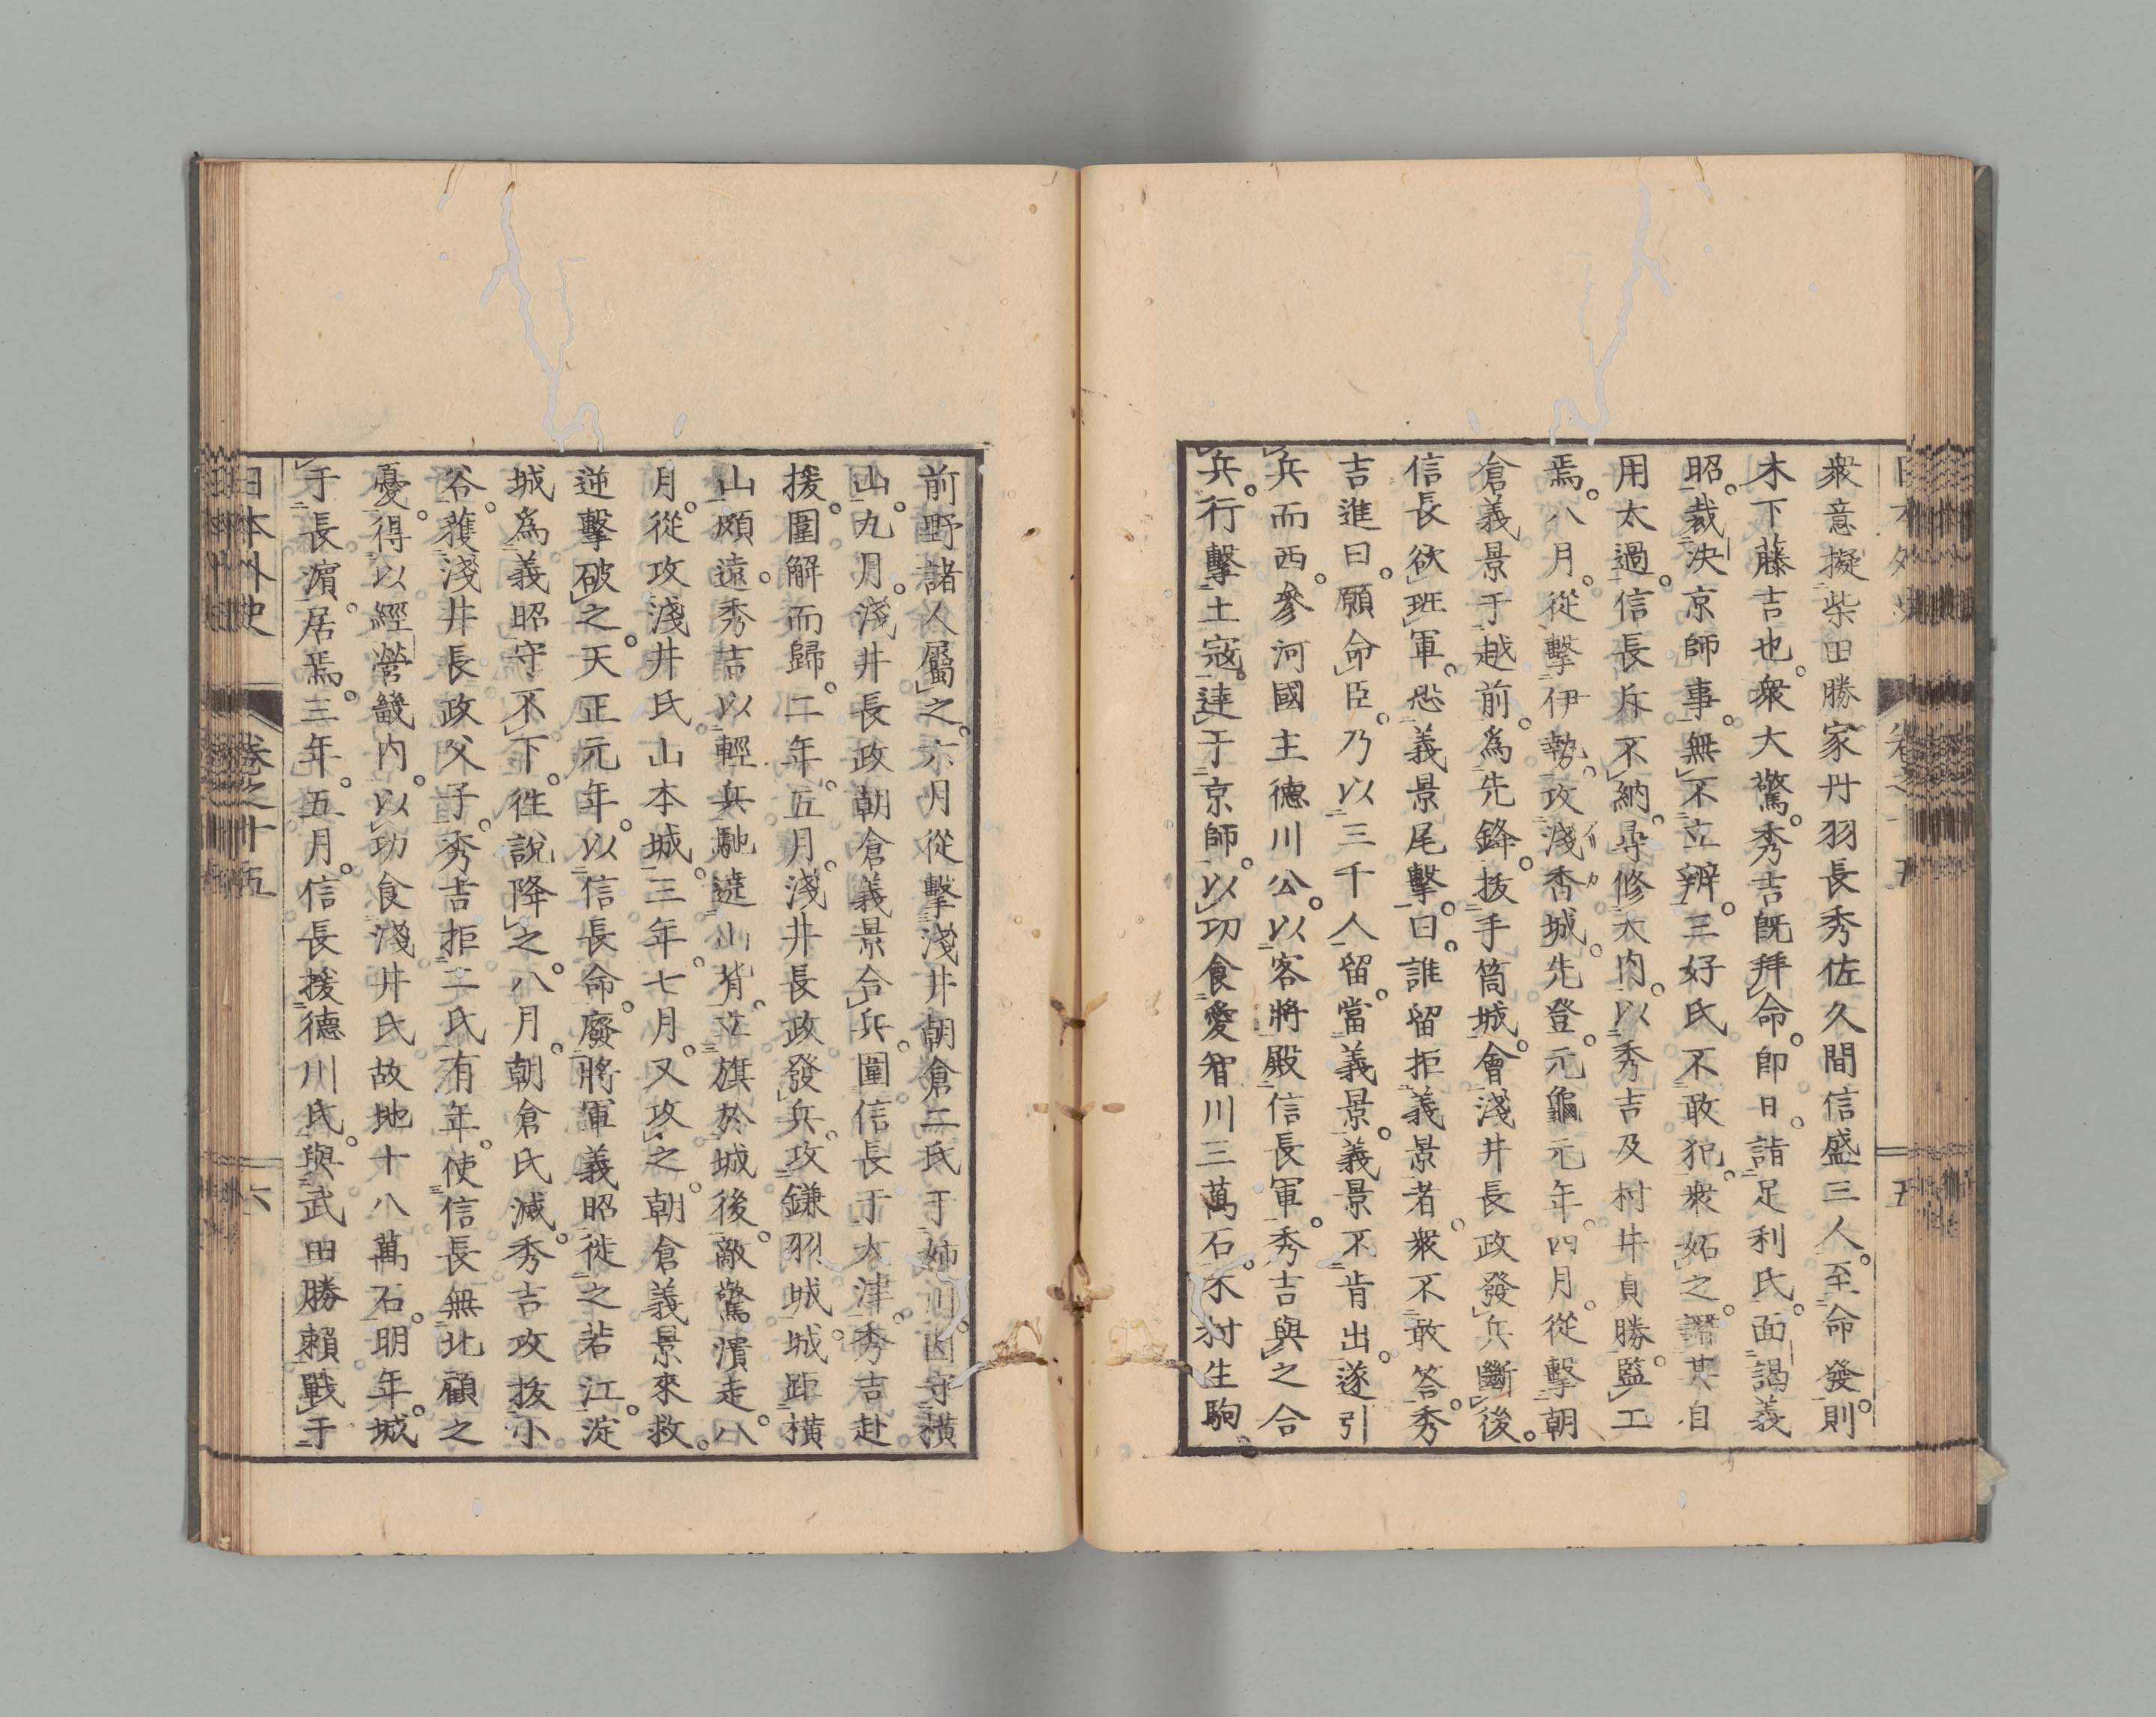 衆意擬柴田勝家丹羽長秀佐久間信盛三人。至命發。則
木下藤吉也。衆大驚。秀吉既拜命。即日。詣足利氏。面謁義
昭。裁決京師事。無不立辨。三好氏不敢犯。衆妬之。謂其自
用太過。信長斥不納。尋修大内。以秀吉及村井貞勝監工
焉。八月。從擊伊勢。攻淺香城。先登。元龜元年。四月。從擊朝
倉義景于越前。爲先鋒。拔手筒城。會淺井長政發兵斷後。
信長欲班軍。恐義景尾擊。曰。誰留拒義景者。衆不敢答。秀
吉進曰。願命臣。乃以三千人留。當義景。義景不肯出。遂引
兵而西。參河國主德川公。以客將殿信長軍。秀吉與之合
兵。行擊土寇。達于京師。以功食愛智川三萬石。木村生駒。
前野諸人屬之。六月從擊淺井朝倉二氏于姉川。因守橫
山。九月。淺井長政朝倉義景合兵。圍信長于大津。秀吉赴
援。圍解而歸。二年。五月。淺井長政發兵。攻鎌羽城。城距橫
山頗遠。秀吉以輕兵馳遶山背。立旗於城後。敵驚潰走。八
月。從攻淺井氏山本城。三年。七月。又攻之。朝倉義景來救。
逆擊破之。天正元年。以信長命。廢將軍義昭。徙之若江。淀
城爲義昭守不下。往說降之。八月。朝倉氏滅。秀吉攻拔小
谷。獲淺井長政父子。秀吉拒二氏有年。使信長無北顧之
憂。得以經營畿内。以功食淺井氏故地十八萬石。明年。城
于長濵居焉。三年。五月。信長援德川氏。與武田勝賴戰于
日本外史
卷之十五
六